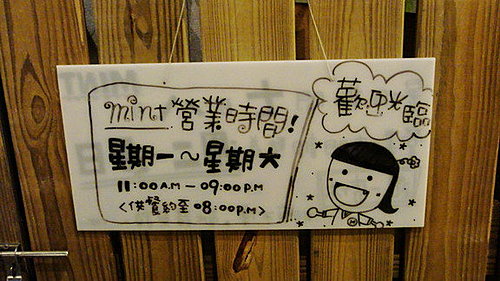 mint 營業時間!
星期一～星期六
11:00A.M — 09:00P.M
<供餐約至08:00P.M>
歡迎光臨